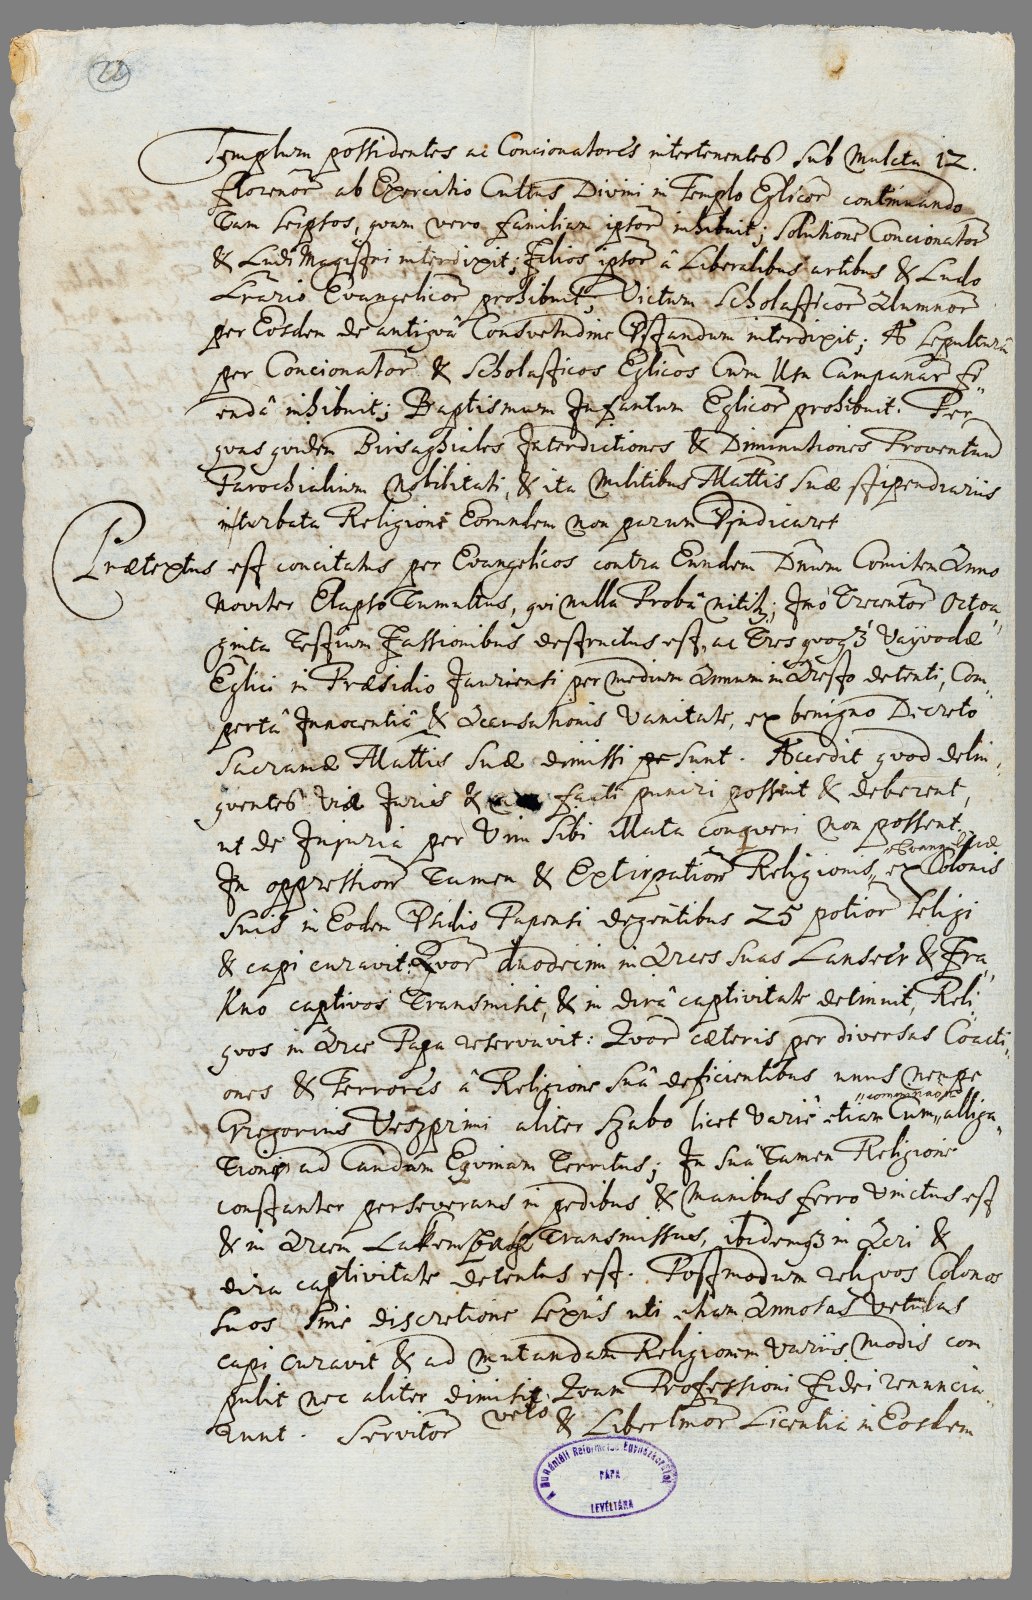 22
Templum possidentes ac Concionatores intertenentes sub Mulcta 12.
florenor ab Exercitio Cultus Divini in Templo Eglicor continuando
Tam seipsos, quam vero familiam ipsor inhibuit; Solutione Concionator
& Ludi Magistri interdixit; Filios ipsor â Liberalibus artibus & Ludo
Lrario Evangelicor prohibuit; Victum Scholasticor Alumnor
per Eosdem de antiqvâ Consvetudine Pstandum interdixit; A Sepulturâ
per Concionator & Scholasticos Eglicos Cum Usu Campanar fi„
endâ inhibuit; Baptismum Infantum Eglicor prohibuit. Per
qvas qvidem Birsaghiales Interdictiones & Diminutiones Proventuu
Parochialium Nobilitati, & ita Militibus Mattis Suæ stipendiariis
inturbata Religione Eorundem non parum Pjudicaret
Prætextus est concitatus per Evangelicos contra Eundem Dnum Comitem Anno
Noviter Elapso Tumultus, qvi nulla Probâ nititr; Imò Trecentor Octoa„
ginta Testium Fassionibus destructus est, ac Tres qvoqz Vajvodæ
Eglici in Præsidio Jauriensi per medium Annum in Aresto detenti, Com„
pertâ Innocentiâ & Accusationis Vanitate, ex benigno Decreto
Sacramæ Mattis Suæ dimissi sunt. Accedit qvod delin„
qventes Viæ Juris & facti puniri possint & deberent,
ut de Injuria per Vim Sibi illata conqveri non possent.
Evangelicæ
In oppressione Tamen & Extirpatione Religionis„ ex Colonis
Suis in Eodem Psidio Papensi degentibus 25 potior seligi
& capi curavit: Qvor duodecim in Arces Suas Lanseer & Fra„
kno captivos Transmisit, & in dirâ captivitate detinuit, Reli„
qvos in Arce Papa reservavit: Qvor cæteris per diversas Coacti„
ones & Terrores â Religione Suâ deficientibus unus nempe
„comminaõne
Gregorius Veszprimi aliter Szabo licet Variè etiam Cum„ alliga„
Tionis ad Caudam Eqvinam Territus; In Suâ Tamen Religione
constanter perseverans in pedibus & Manibus ferro Vinctus est
& in Arcem Lakenspach Transmissus, ibidemqz in Acri &
dira captivitate detentus est. Postmodum reliqvos Colonos
Suos Sine discretione Sexûs uti etiam Annosas Vetulas
capi curavit & ad mutandam Religionem Variis Modis com
pulit nec aliter dimisit, Qvam Professioni Fidei renuncia
runt. Servitor vero & Libertinor Licentia in Eosdem
A Dunántúli Református Egyházkerület
PÁPA
LEVÉLTÁRA